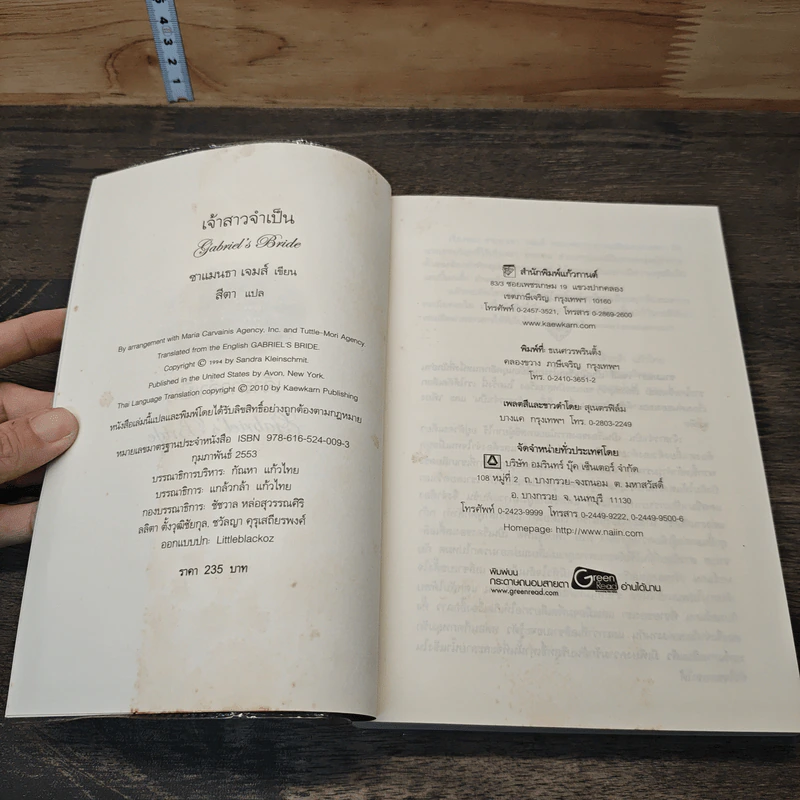 5
4
3
2
1
เจ้าสาวจำเป็น
Gabriel's Bride
ซาแมนธา เจมส์ เขียน
สีตา แปล
By arrangement with Maria Carvainis Agency, Inc. and Tuttle-Mori Agency
Translated from the English GABRIEL'S BRIDE.
Copyright © 1994 by Sandra Kleinschmit.
Published in the United States by Avon, New York.
Thai Language Translation copyright © 2010 by Kaewkarn Publishing
หนังสือเล่มนี้แปลและพิมพ์โดยได้รับลิขสิทธิ์อย่างถูกต้องตามกฎหมาย
หมายเลขมาตรฐานประจำหนังสือ ISBN 978-616-524-009-3
กุมภาพันธ์ 2553
บรรณาธิการบริหาร: กัณหา แก้วไทย
บรรณาธิการ: แกล้วกล้า แก้วไทย
กองบรรณาธิการ: ชัชวาล หล่อสุวรรณศิริ
ลลิตา ตั้งวุฒิชัยกุล, ชวัลญา คุรุเสถียรพงศ์
ออกแบบปก: Littleblackoz
ราคา 235 บาท
สำนักพิมพ์แก้วกานต์
83/3 ซอยเพชรเกษม 19 แขวงปากคลอง
เขตภาษีเจริญ กรุงเทพฯ 10160
โทรศัพท์ 0-2457-3521, โทรสาร 0-2869-2600
www.kaewkarn.com
พิมพ์ที่: ธเนศวรพรินติ้ง
คลองขวาง ภาษีเจริญ กรุงเทพฯ
โทร. 0-2410-3651-2
เพลตสีและขาวดำโดย: สุเนตรฟิล์ม
บางแค กรุงเทพฯ โทร. 0-2803-2249
จัดจำหน่ายทั่วประเทศโดย
บริษัท อมรินทร์ บุ๊ค เซ็นเตอร์ จำกัด
108 หมู่ที่ 2 ถ. บางกรวย-จงถนอม ต. มหาสวัสดิ์
อ. บางกรวย จ. นนทบุรี 11130
โทรศัพท์ 0-2423-9999 โทรสาร 0-2449-9222, 0-2449-9500-6
Homepage: http://www.naiin.com
พิมพ์บน
กระดาษถนอมสายตา Green Read อ่านได้นาน
www.greenread.com